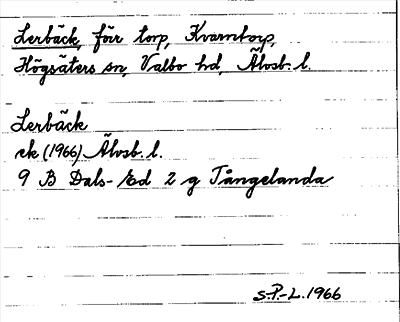 Lerbäck, förr torp, Kvarntorp,
Högsäters sn, Valbo hd, Älvsb. l.
Lerbäck
ek (1966) Älvsb. l.
9 B Dals-Ed 2 g Tångelanda
S.P.-L. 1966